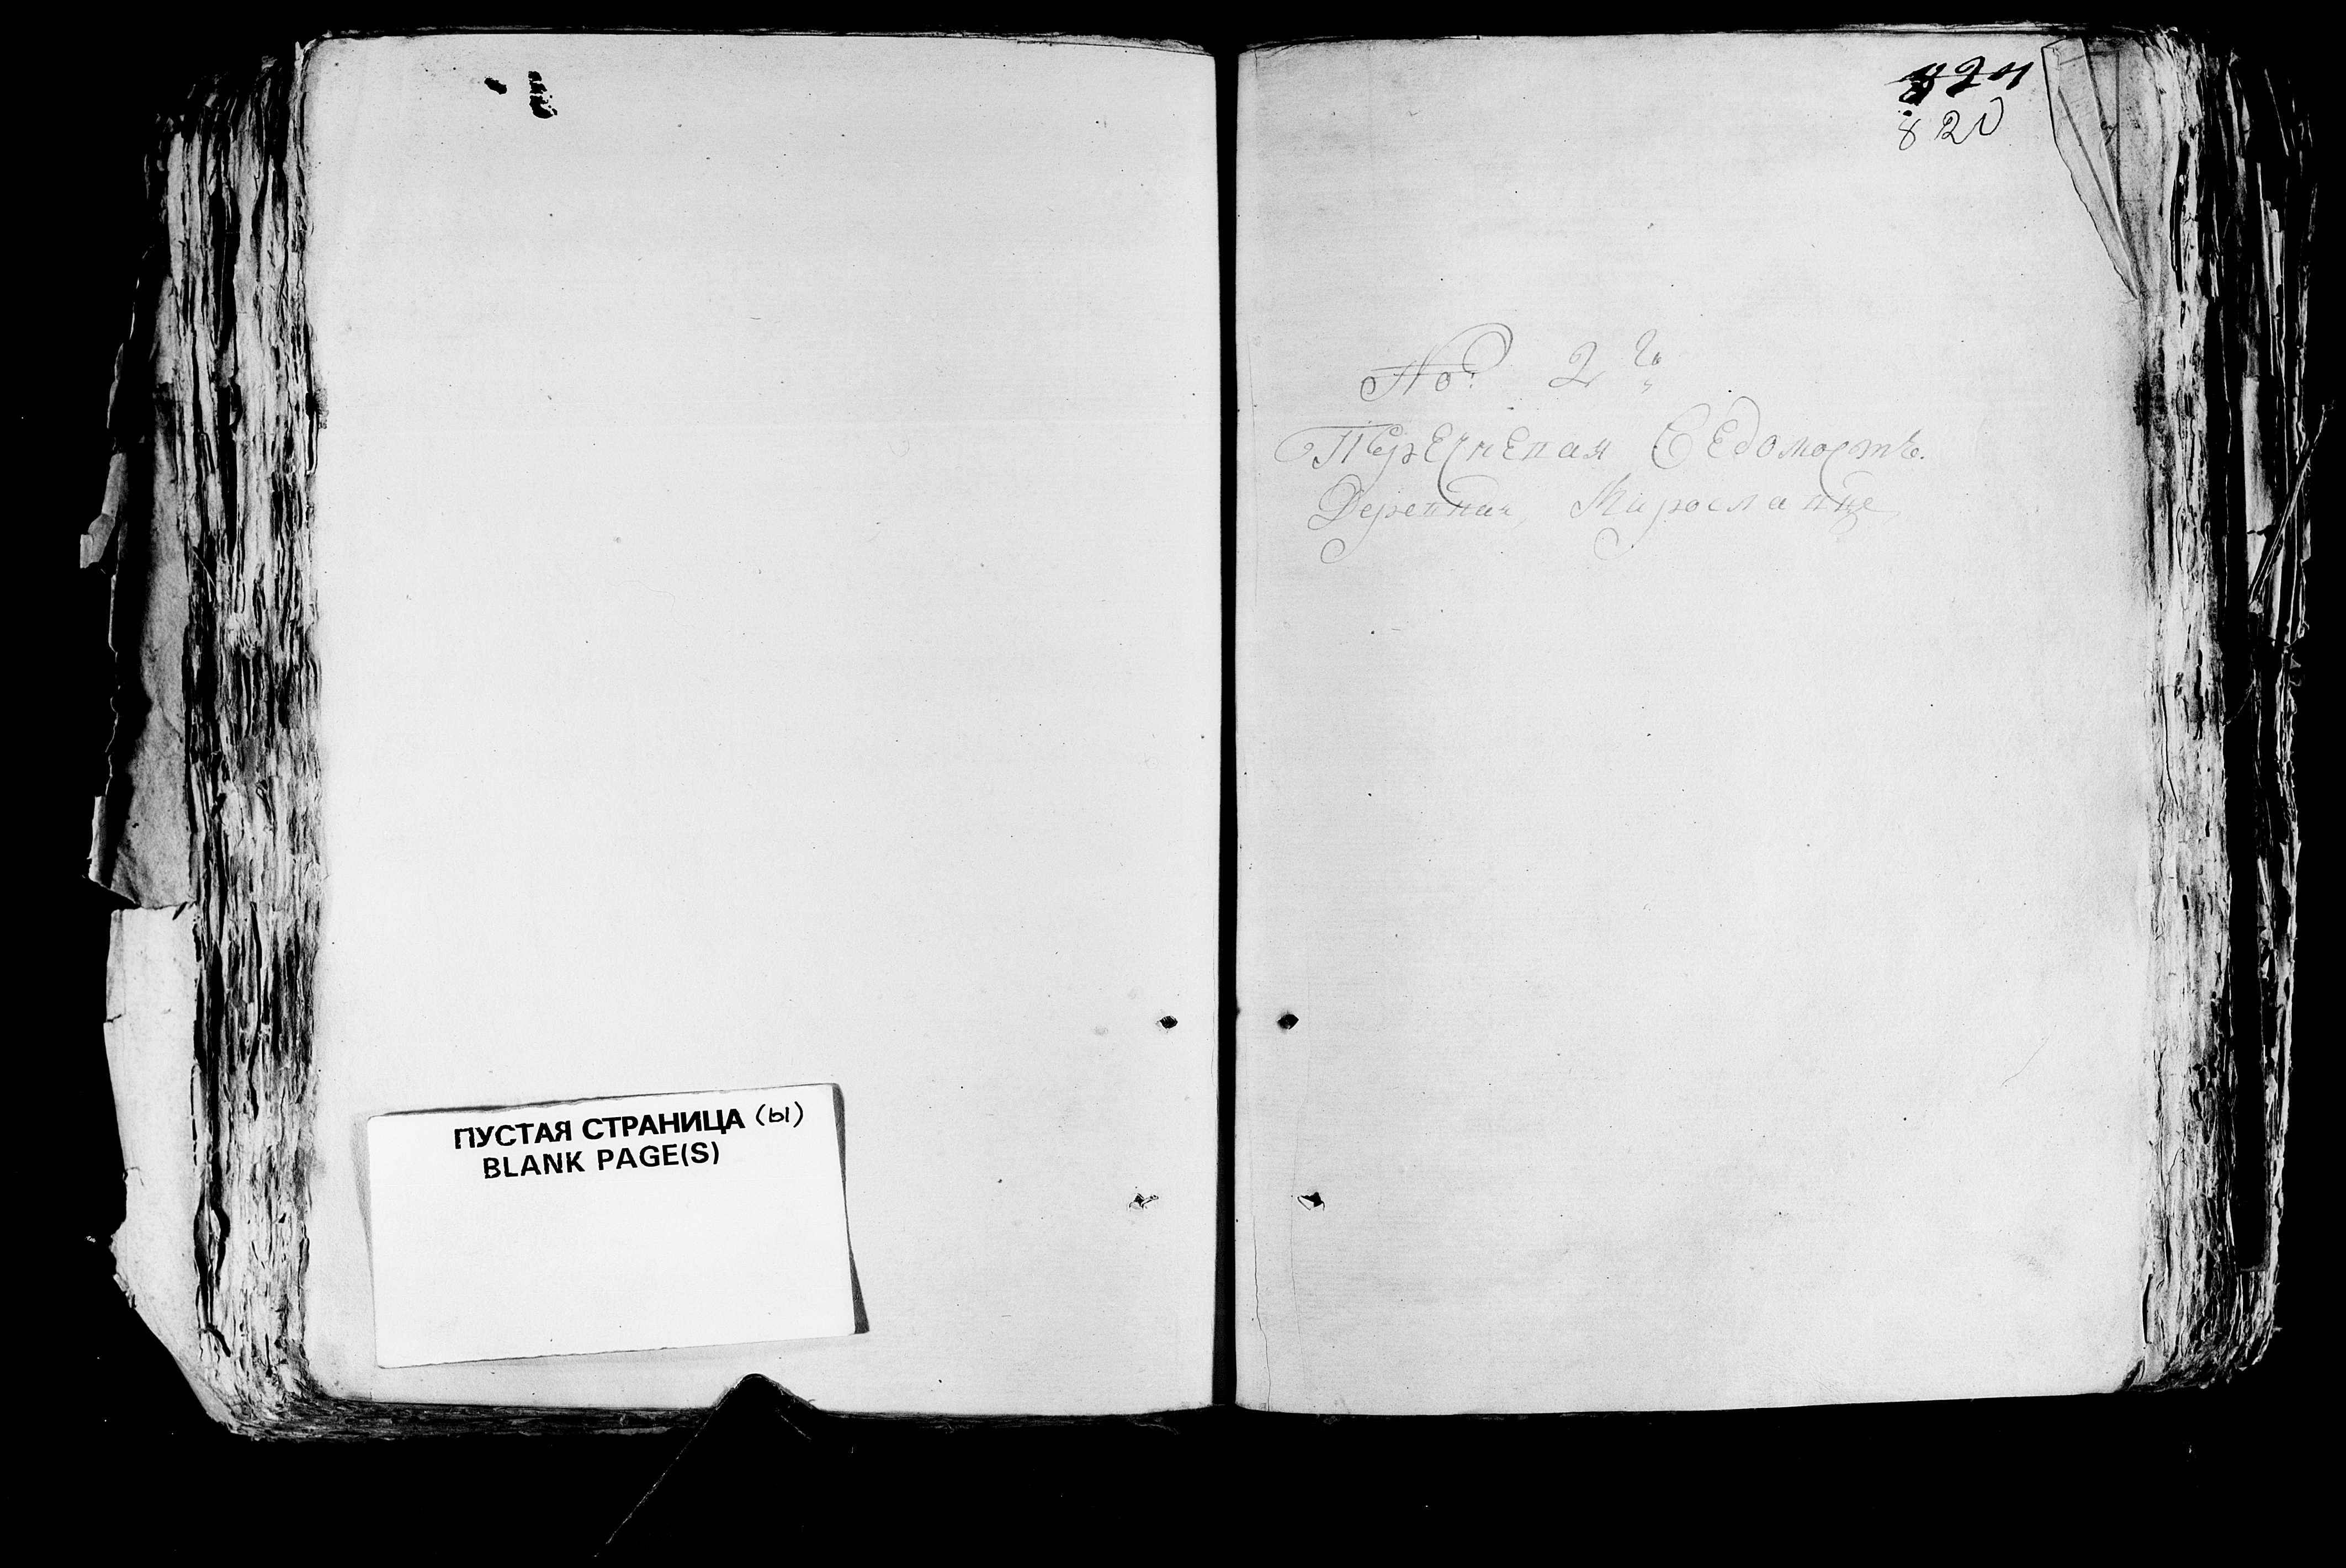 ПУСТАЯ СТРАНИЦА (ы)
BLANK PAGE(S)
820
No: 2й
Перечнепая Ведомость.
Дерепная, Жирославце